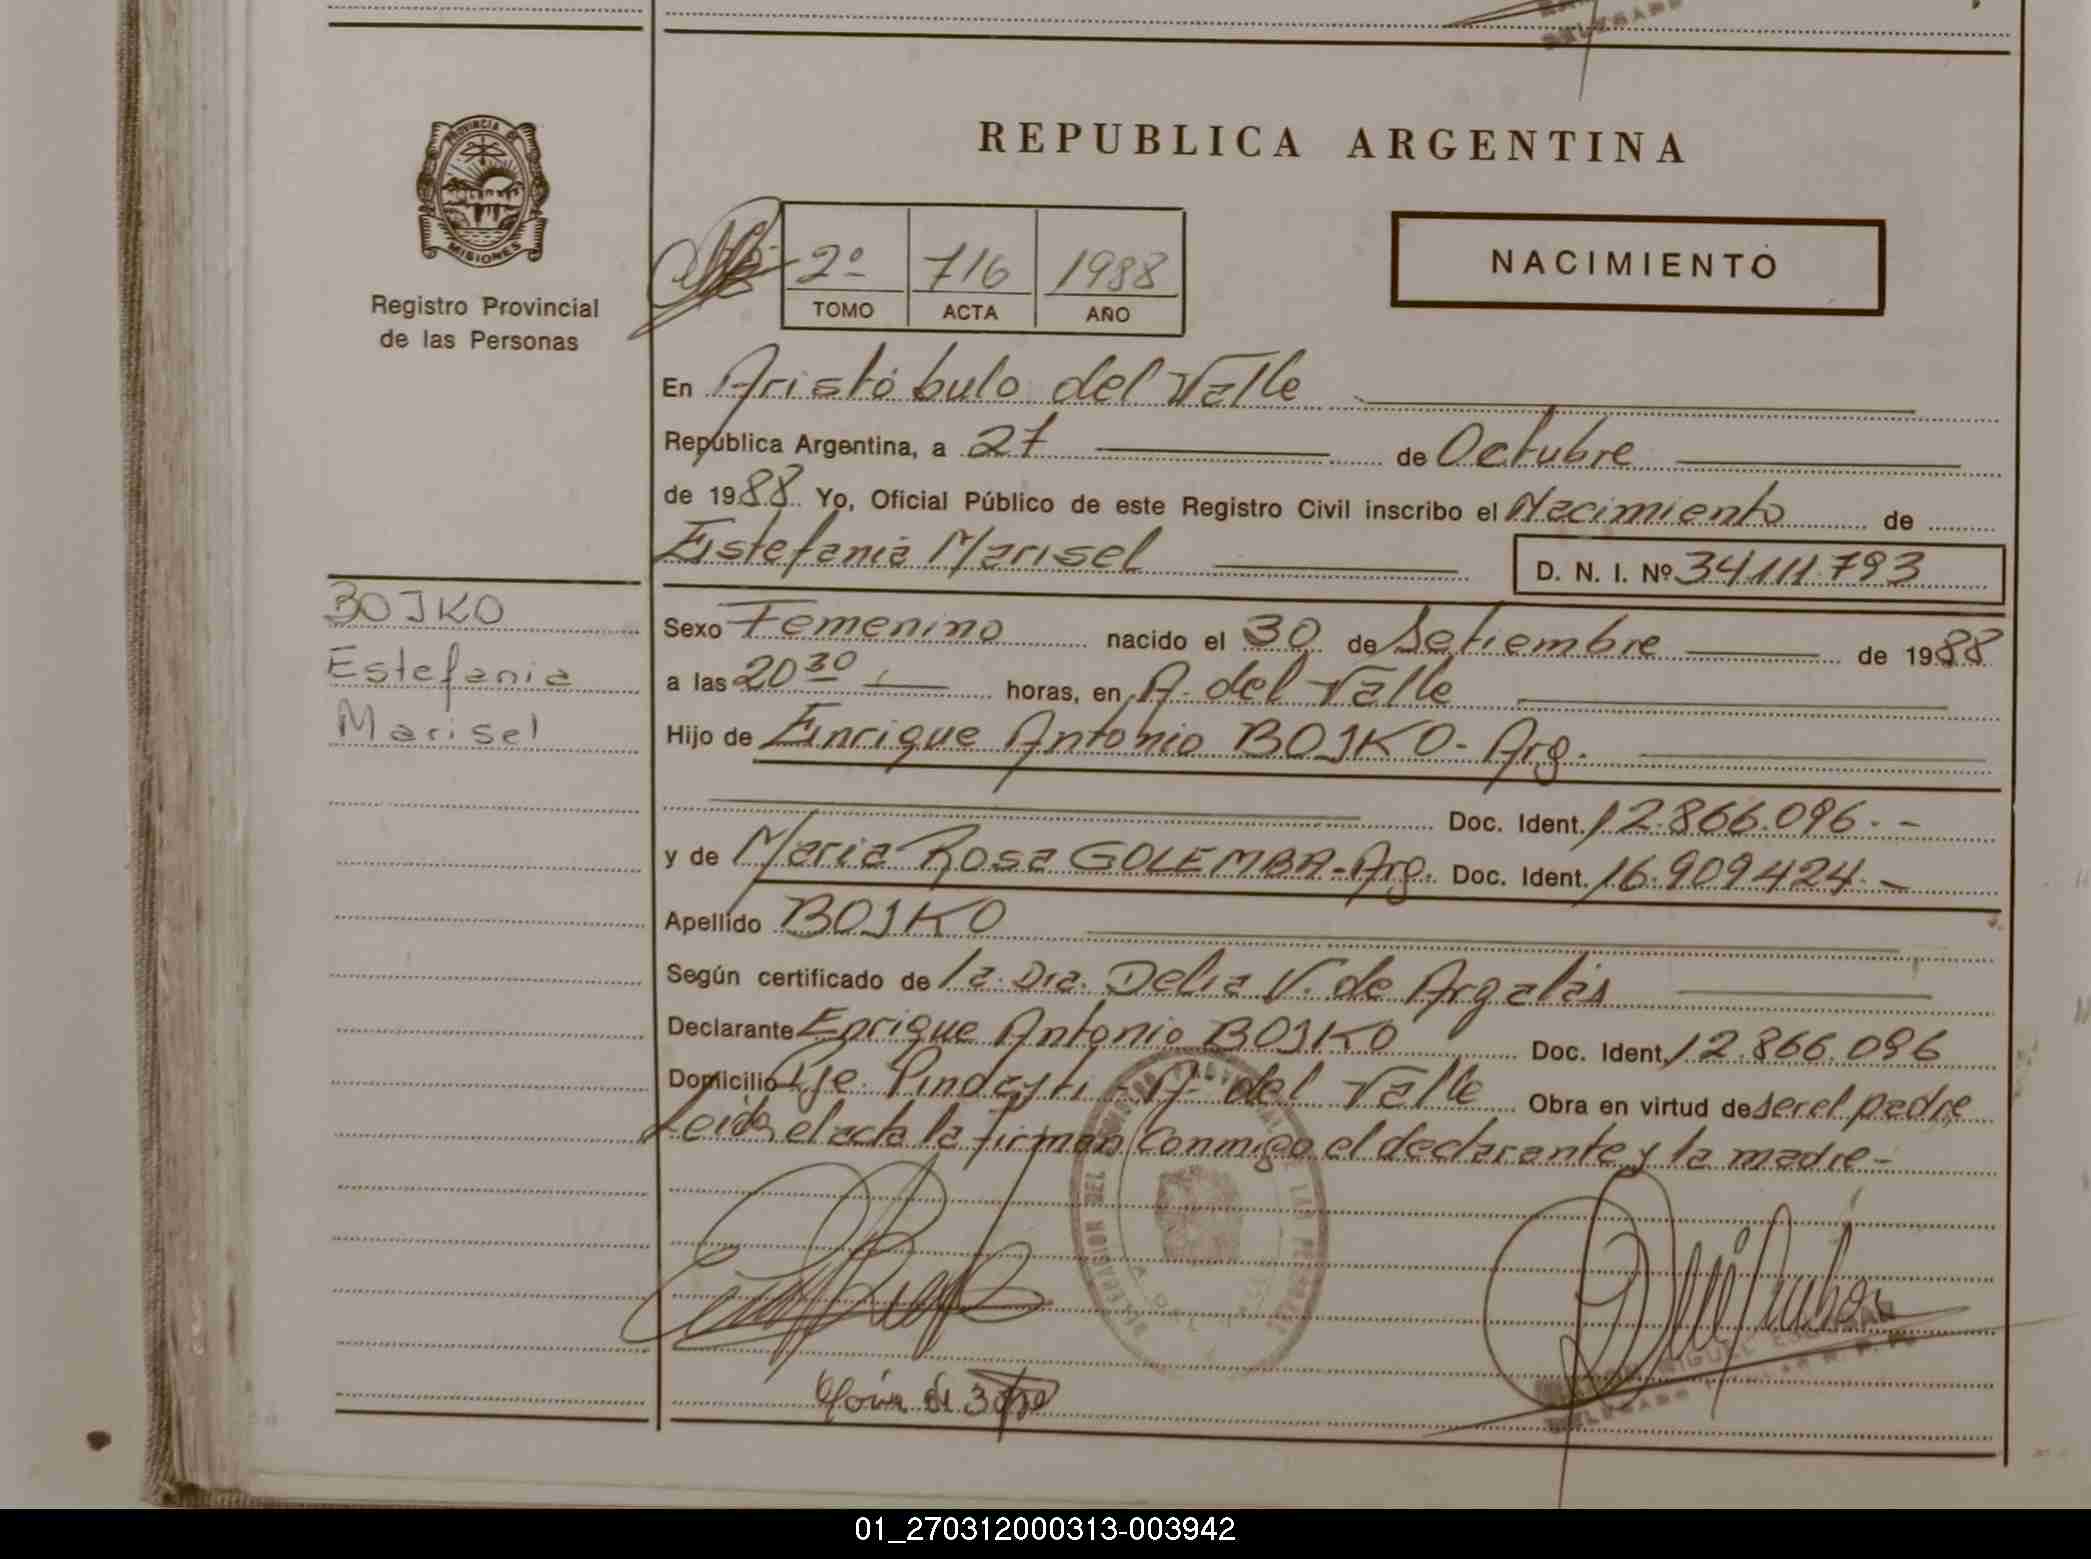 REPUBLICA ARGENTINA
PROVINCIA DE
MISIONES
Registro Provincial
de las Personas
2º 716 1988
TOMO ACTA AÑO
NACIMIENTO
En Aristóbulo del Valle
República Argentina, a 27 de Octubre
de 1988 Yo, Oficial Público de este Registro Civil inscribo el Nacimiento de
Estefania Marisel D. N. I. Nº 34.111.793
BOJKO
Estefania
Marisel
Sexo Femenino nacido el 30 de Setiembre de 1988
a las 20 30 horas, en A. del Valle
Hijo de Enrique Antonio BOJKO - Arg.
Doc. Ident. 12.866.096.-
y de Maria Rosa GOLEMBA - Arg. Doc. Ident. 16.909424.-
Apellido BOJKO
Según certificado de la Dra. Delia V. de Argalás
Declarante Enrique Antonio BOJKO Doc. Ident. 12.866.096
Domicilio Pje. Pindayti - A. del Valle Obra en virtud de ser el padre
Leida el acta la firman conmigo el declarante y la madre -
DELEGADO
01_270312000313-003942